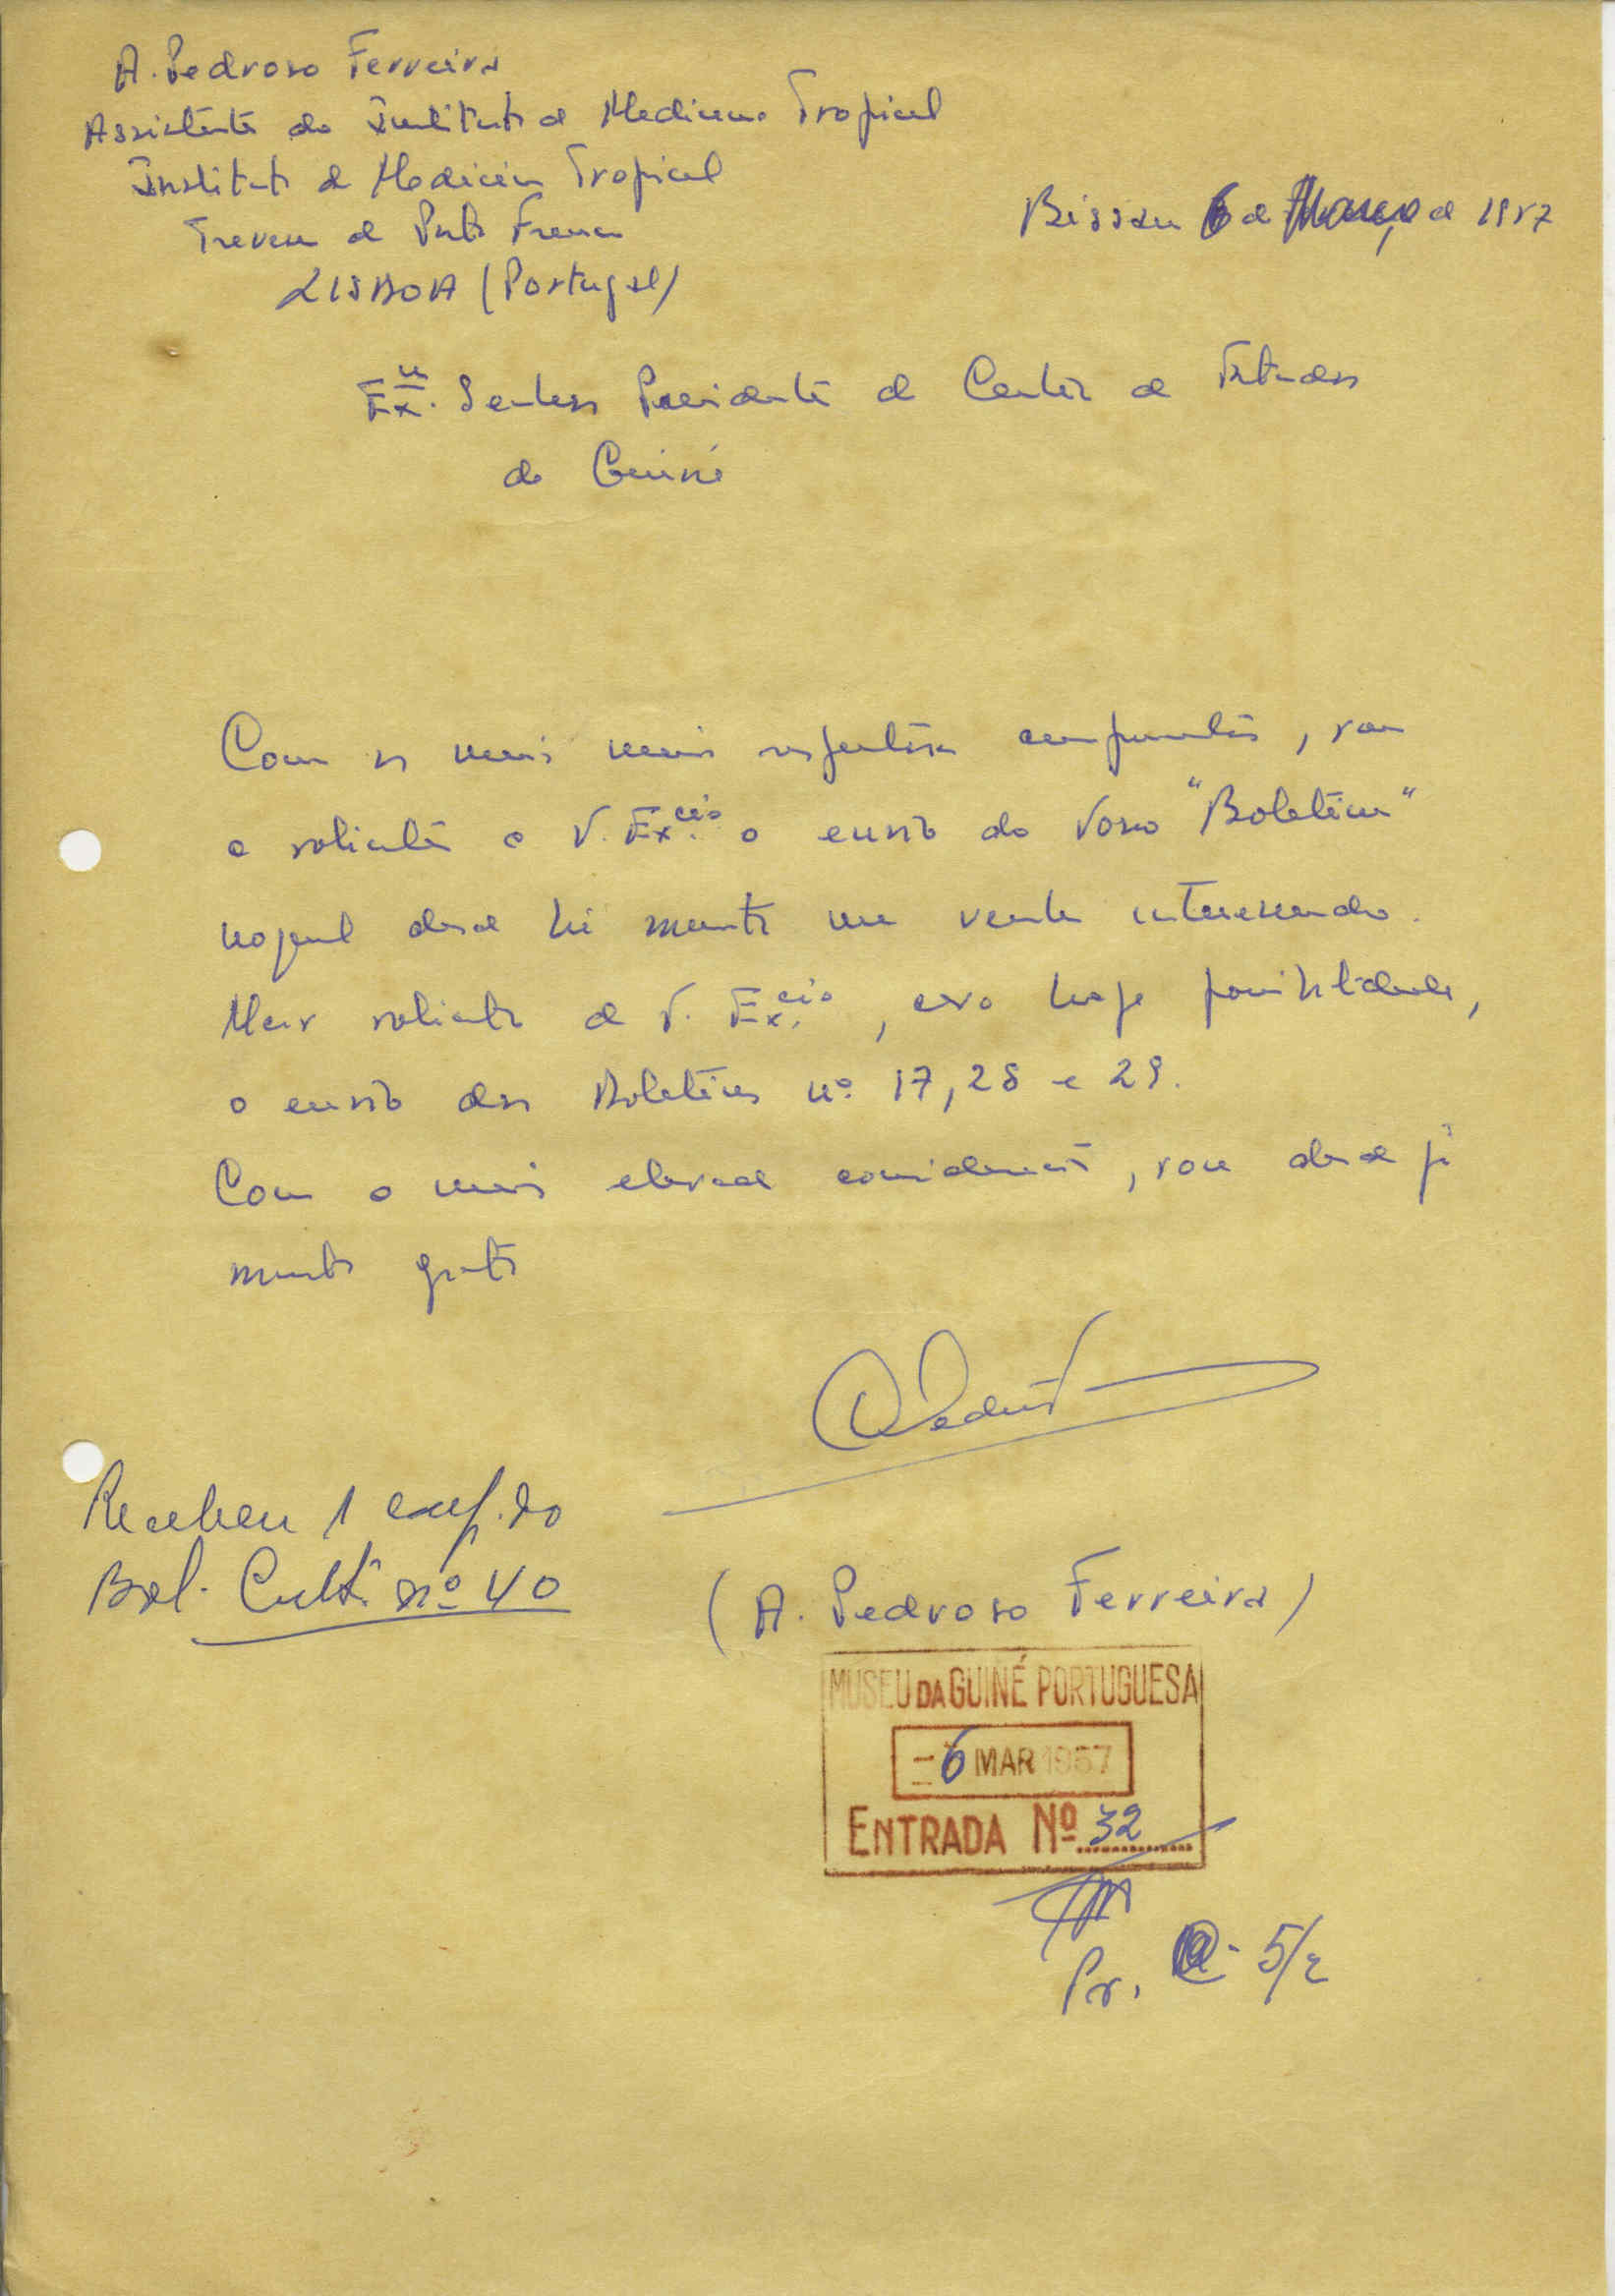 A. Pedroso Ferreira
Assistente do Instituto de Medicina Tropical
Instituto de Medicina Tropical
Lisboa (Portugal)
Bissau 6 de Março de 1957
Exº. Senhor Presidente do Centro de Estudos
da Guiné
Com os meus mais respeitosos cumprimentos, vou
a solicitar a V. Excia. o envio do Vosso "Boletim"
no qual desde há muito me venho interessando.
Mais solicito de V. Excia., caso haja possibilidade,
o envio dos Boletins nº. 17, 28 e 29.
Com a mais elevada consideração, sou desde já
muito grato
(A. Pedroso Ferreira)
Recebeu 1 exep. do
Bol. Cult. nº 40
MUSEU DA GUINÉ PORTUGUESA
-6 MAR 1957
ENTRADA Nº 32
Pr. 5/2